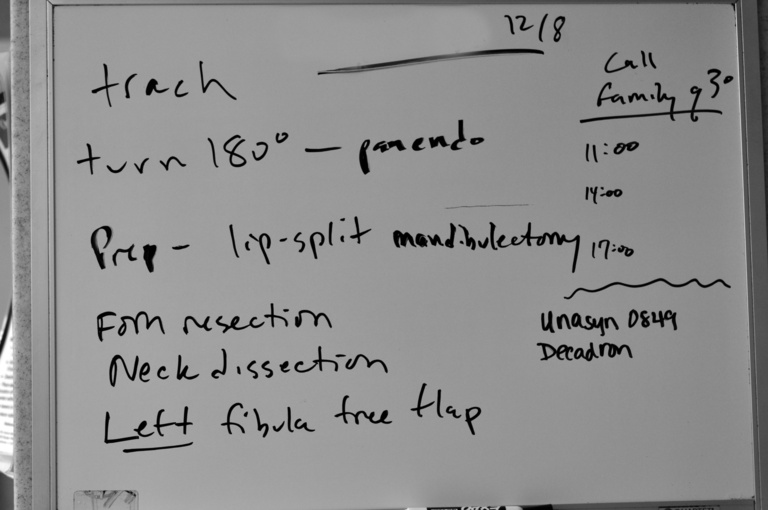 12/8
trach
turn 180° — panendo
Prep - lip-split mandibulectomy
Fom resection
Neck dissection
Left fibula free flap
Call
family q3°
11:00
14:00
17:00
Unasyn 0849
Decadron